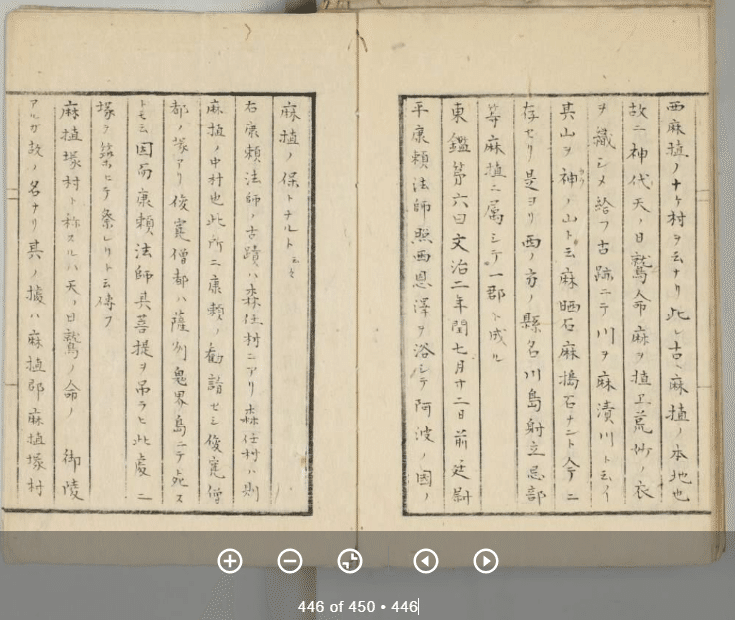 西麻植ノ十ケ村ヲ云ナリ此レ古ヘ麻植ノ本地也
故ニ神代天ノ日鷲命麻ヲ植エ荒妙ノ衣
ヲ織シメ給フ古跡ニテ川ヲ麻漬川ト云イ
其山ヲ神ノ山ト云麻晒石麻搗石ナント今ニ
存セリ是ヨリ西ノ方ノ縣名川島射立忌部
等麻植ニ属シテ一郡ト成ル
東鑑第六曰文治二年閏七月廿二日前廷尉
平康頼法師恩澤ヲ浴シテ阿波ノ国ノ
麻植ノ保トナルト云々
右康頼法師ノ古蹟ハ森任村ニアリ森任村ハ則
麻植ノ中村也此所ニ康頼ノ勧請セシ俊寛僧
都ノ塚アリ俊寛僧都ハ薩州鬼界島ニテ死ス
トモ云因而康頼法師其菩提ヲ弔ラヒ此處ニ
塚ヲ築ヒテ祭レリト云傳フ
麻植塚村ト称スルハ天ノ日鷲ノ命ノ御陵
アルガ故ノ名ナリ其ノ據ハ麻植郡麻植塚村
446 of 450 • 446